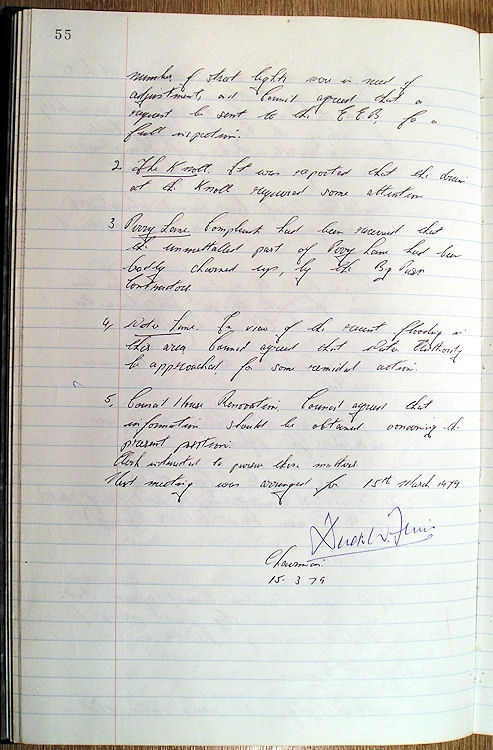 55
number of street lights were in need of
adjustments and Council agreed that a
request be sent to the E.E.B. for a
full inspection.
2. The Knoll. It was reported that the drain
at the Knoll required some attention
3 Povey Lane. Complaints had been received that
the unmetalled part of Povey Lane had been
badly churned up, by the By Pass
Contractors.
4, Water Lane. In view of the recent flooding in
this area Council agreed that Water Authority
be approached for some remedial action.
5, Council House Renovation. Council agreed that
information should be obtained concerning the
present position.
Clerk instructed to pursue these matters
Next meeting was arranged for 15th March 1979
Chairman.
15. 3 79